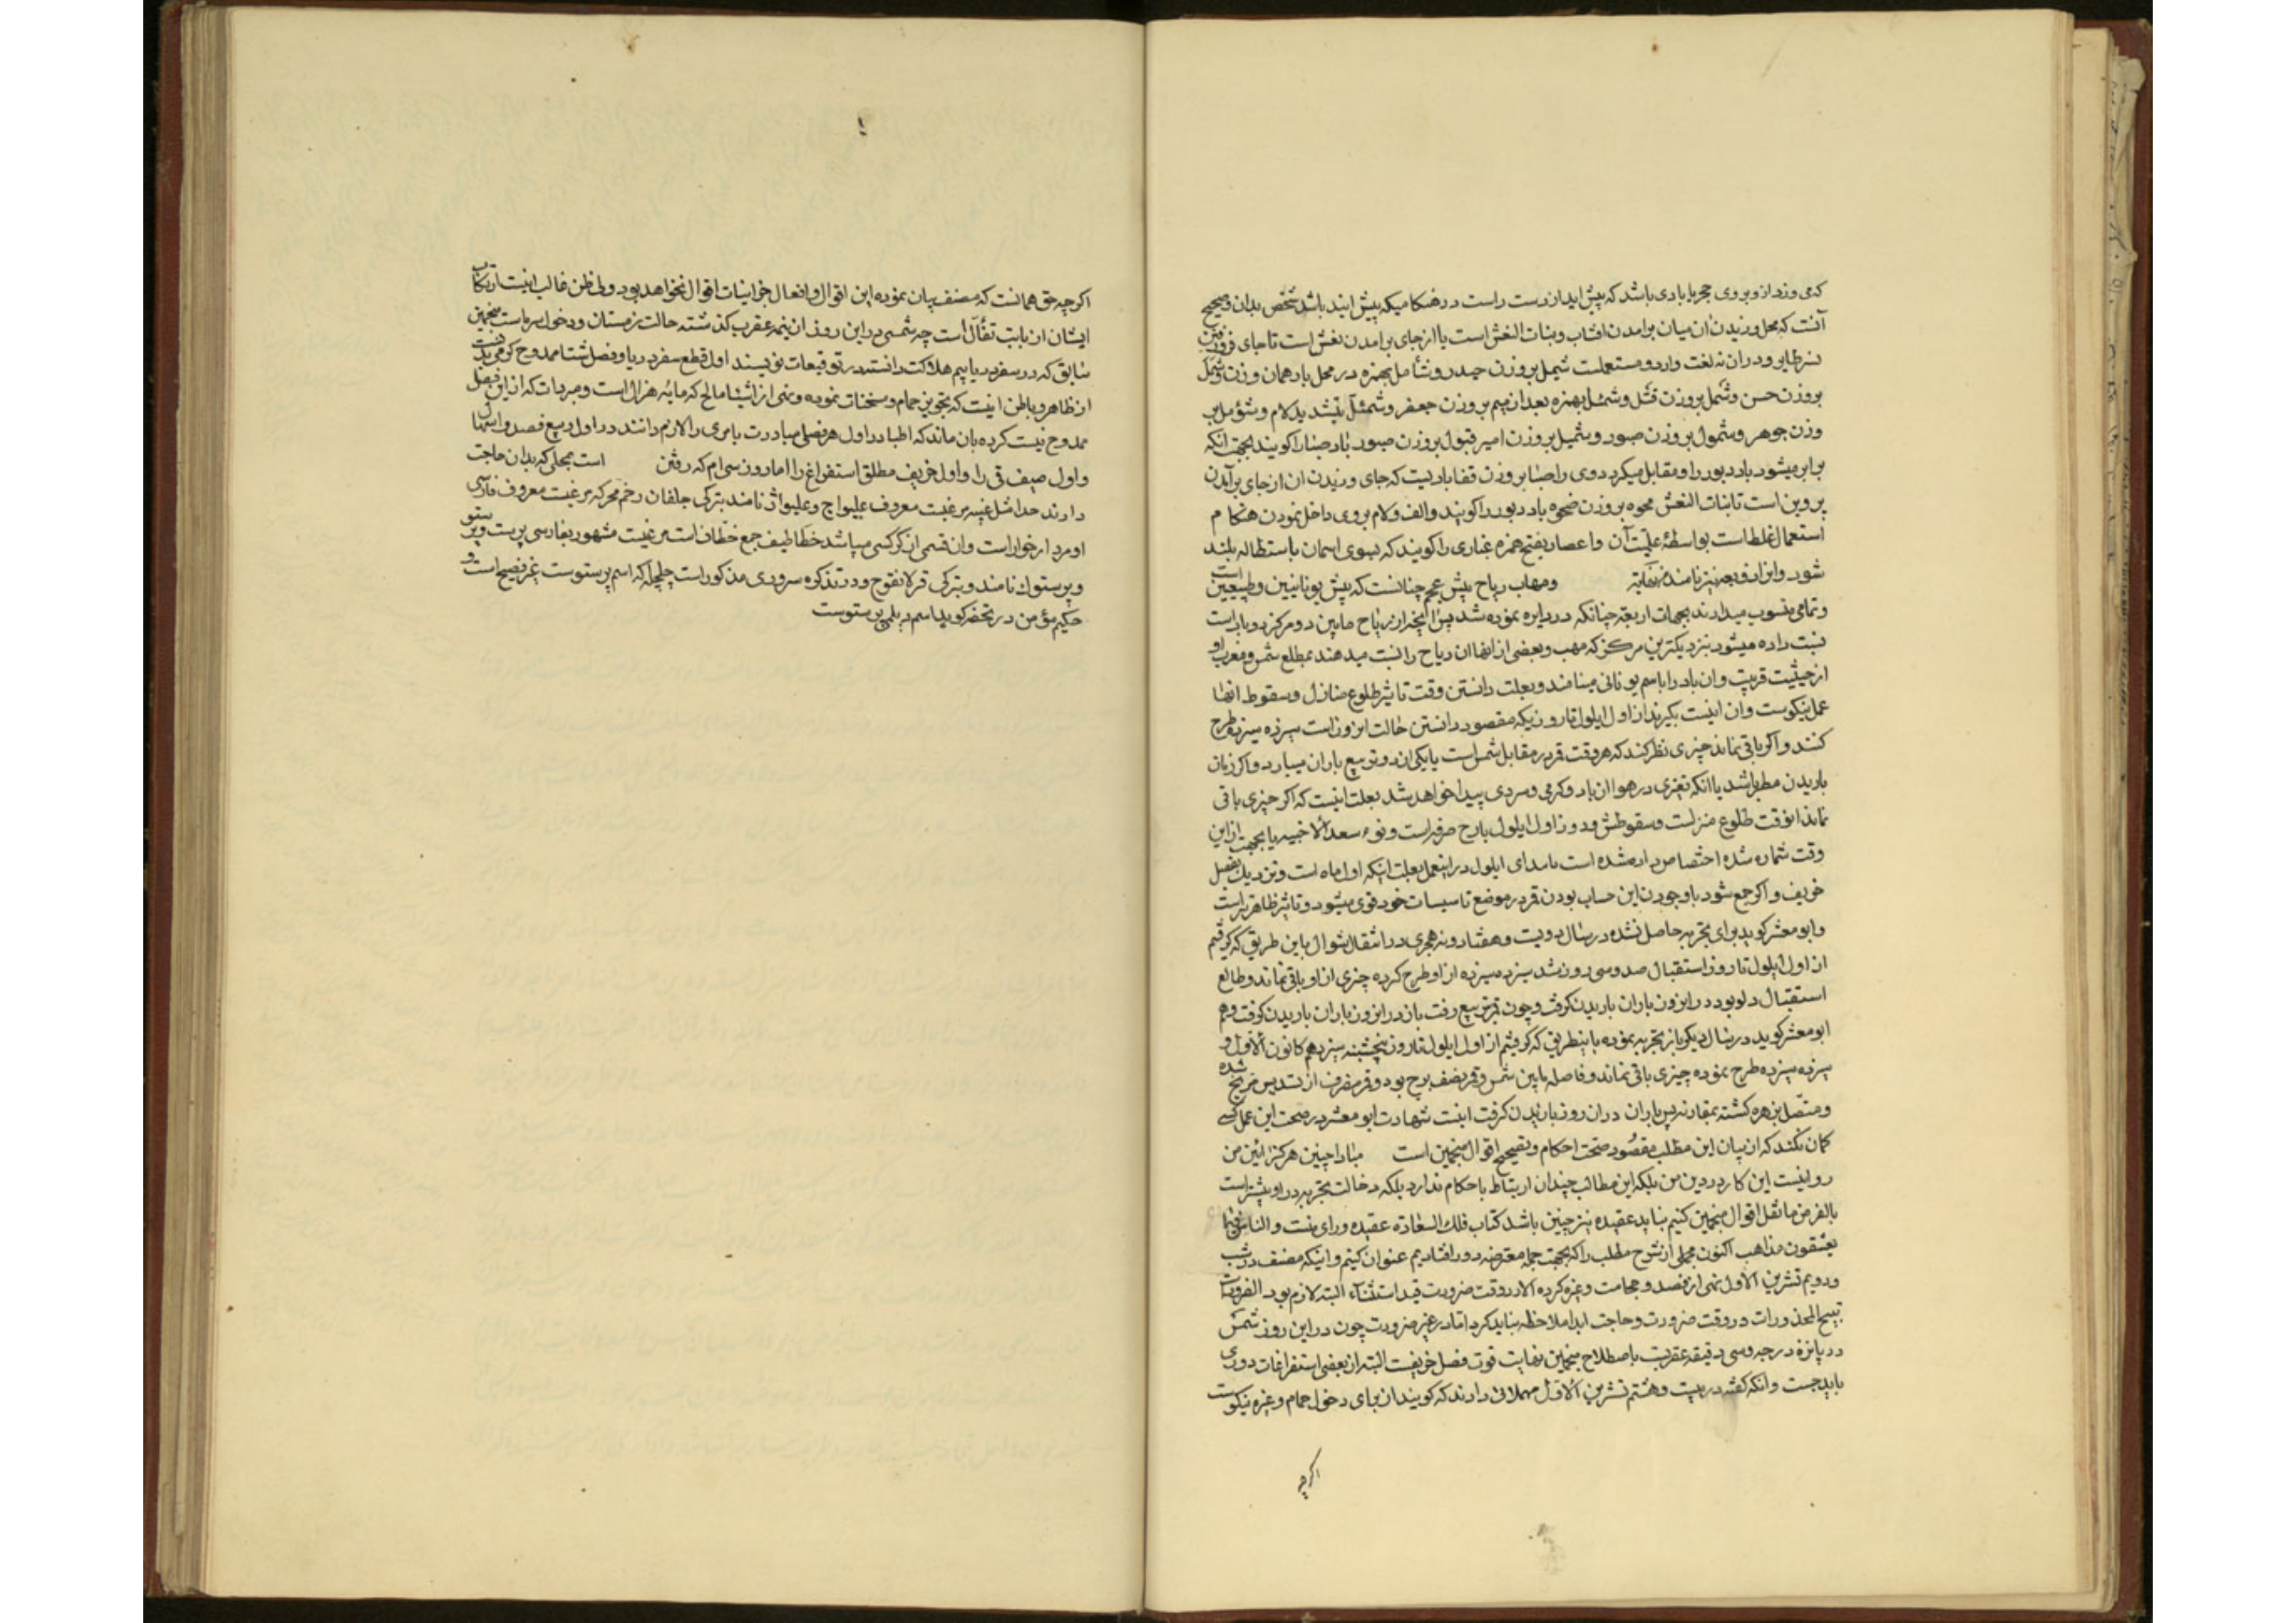 که می وزد از وبروی حجر یا بادی باشد که پیش اید از دست راست در هنکامیکه پیش ایند باشد شخص بدان و صحیح
آنست که محل وزیدن ان میان برامدن افتاب و بنات النعش است یا از جای برامدن نعش است تا جای فرو رفتن
نسر طایر و در ان نه لغت وارد و مستعملست شیمل بروزن حیدر و شأمل بهمزه در محل یا و همان وزن و شمل
بروزن حسن و شمل بروزن فتل و شمئل بهمزه بعد از میم بروزن جعفر و شمئل بتشدید لام و شؤمل بر
وزن جوهر و شمول بروزن صبور و شمیل بروزن امیر قبول بروزن صبور باد صبا را کویند بجهت آنکه
برابر میشود باد دبور را و مقابل میکرد دوی را صبا بروزن قفا بادیست که جای وزیدن ان از جای برآمدن
پروین است تا بنات النعش محوه بروزن ضحوه باد دبور را کویند و الف و لام بروی داخل نمودن هنکام
استعمال غلطاست بواسطهٔ علمیت آن و اعصار بفتح همزه غباری را کویند که بسوی اسمان باستطاله بلند
شود و انرا زوبعه نیز نامند ومهاب ریاح پیش عجم چنانست که پیش یونانیین و طبیعیین است
و تمامی منسوب میدارند بجهات اربعه چنانکه در دایره نموده شد پس انچه از ریاح مابین دو مرکز دو باد است
نسبت داده میشود بنزدیکترین مرکز که مهب و بعضی از انها ان ریاح را نسبت میدهند بمطلع شمس و مغرب او
از حیثیت قربیت و ان باد را باسم یونانی مینامند و بعلت دانستن وقت تاثیر طلوع منازل و سقوط انها
عمل نیکوست و ان اینست بکیرند از اول ایلول تا روزیکه مقصود دانستن حالت انروز است سیزده سیزده طرح
کنند و اکر باقی نماند چیزی نظر کند که هر وقت قمر در مقابل شمس است یا یکی از دو تربیع باران میبارد و اکر زمان
باریدن مطر باشد یا انکه تغیری در هوا از باد و کرمی و سردی پیدا خواهد شد بعلت اینست که اکر چیزی باقی
نماند انوقت طلوع منزلست و سقوطش و دوز اول ایلول بارح صرفه است و نوء سعد الاخبیه یا بجهت از این
وقت شماره شده اختصاص داده شده است بامدای ایلول در اینعمل بعلت اینکه اول ماه است و نزدیک بفصل
خریف و اکر جمع شود باوجودن این حساب بودن قمر در موضع تاسیسات خود قوی میشود و تاثیر ظاهرتر است
و ابو معشر کوید برای تجربه حاصل نشده در سال دویست و هفتاد و نه هجری در انتقال شوال باین طریق که کرفتیم
از اول ایلول تا روز استقبال صد و سی روز شد سیزده سیزده از او طرح کرده چیزی از او باقی نماند و طالع
استقبال دلو بود در انروز باران باریدن کرفت و چون قمر بتربیع رفت باز در انروز باران باریدن کرفت و هم
ابو معشر کوید در سال دیکر باز تجربه نموده باینطریق که کرفتیم از اول ایلول تا روز پنجشنبه سیزدهم کانون الاول و
سیزده سیزده طرح نموده چیزی باقی نماند و فاصله مابین شمس و قمر نصف برج بود و قمر منصرف از تسدیس مریخ شده
و متصل بزهره کشته بمقارنه پس باران دران روز باریدن کرفت اینست شهادت ابو معشر در صحت این عمل کسی
کمان نکند که از بیان این مطلب مقصود صحت احکام و تصحیح اقوال منجمین است مبادا چنین هرکز ائین من
روا نیست این کار در دین من بلکه این مطالب چندان ارتباط باحکام ندارد بلکه دخالت تجربه در او بیشتر است
بالفرض ما نقل اقوال منجمین کنیم نباید عقیده نیز چنین باشد کتاب فلک السعاده عقیده و رای منست و الناس فیما
یعشقون مذاهب اکنون مجملی از شرح مطلب را که بجهت جمله معترضه دور افتادیم عنوان کنیم و اینکه مصنف در شب
و دویم تشرین الاول نهی از فصد و حجامت و غیره کرده الا در وقت ضرورت قید استثناء البته لازم بود الضرورات
تبیح المحذورات در وقت ضرورت و حاجت ابدا ملاحظه نباید کرد اما در غیر ضرورت چون در این روز شمس
در پانزده درجه و سی دقیقه عقربست باصطلاح منجمین نهایت قوت فصل خریفست البته از بعضی استفراغات دوری
باید جست و انکه کفته در بیست و هشتم تشرین الاول مهملاتی دارند که کویند از برای دخول حمام و غیره نیکوست
اکرچه
اکرچه حق همانست که مصنف بیان نموده این اقوال و افعال جز اینیات اقوال نخواهد بود ولی ظن غالب اینست ارتکاب
ایشان از بابت تفأل است چه شمسی در این روز از نیمه عقرب کذشته حالت زمستان و دخول سرماست منجمین
سابق که در سفر دریا بیم هلاکت دانستند در توقیعات نویسند اول قطع سفر دریا و فصل شتا ممدوح کرمی بدنست
از ظاهر و باطن اینست که تجویز حمام و سخنات نموده و نهی از اشیاء مالح که مایه هزال است و مبردات که از این فصل
ممدوح نیست کرده بان ماند که اطبا در اول هر فصلی مبادرت بامری را لازم دانند در اول ربیع فصد و اسهال
و اول صیف قی را و اول خریف مطلق استفراغ را اما رون سی ام که رفتن است بمحلی که بدان حاجت
دارند حدا مثل غیبه مرغیست معروف غلیواج و غلیواژ نامند بترکی جلفان رخم محرکه مرغیست معروف فارسی
او مردارخوار است و ان قسمی از کرکسی میباشد خطاطیف جمع خطاف است مرغیست مشهور بفارسی پرست و پرستو
و پرستوک نامند و بترکی قرلانقوج و در تذکره سروری مذکور است چلچله که اسم پرستوست غیر فصیح است و
حکیم مؤمن در تحفه کوید اسم دیلمی پرستوست